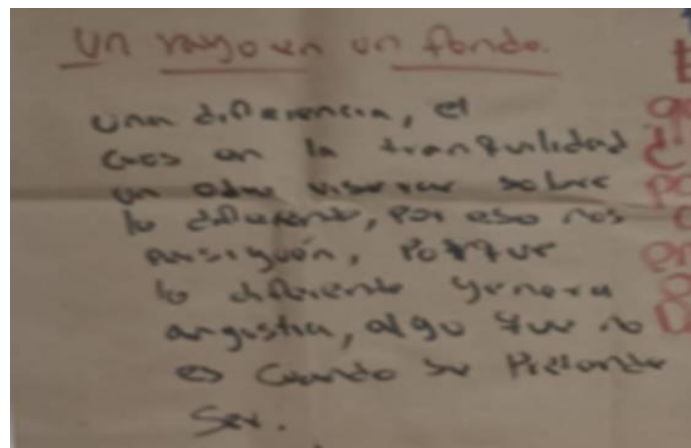 Un rayo en un fondo.
una diferencia, el
caos en la tranquilidad
un odio visceral sobre
lo diferente, por eso nos
persiguen, porque
lo diferente genera
angustia, algo que no
es cuando se pretende
ser.